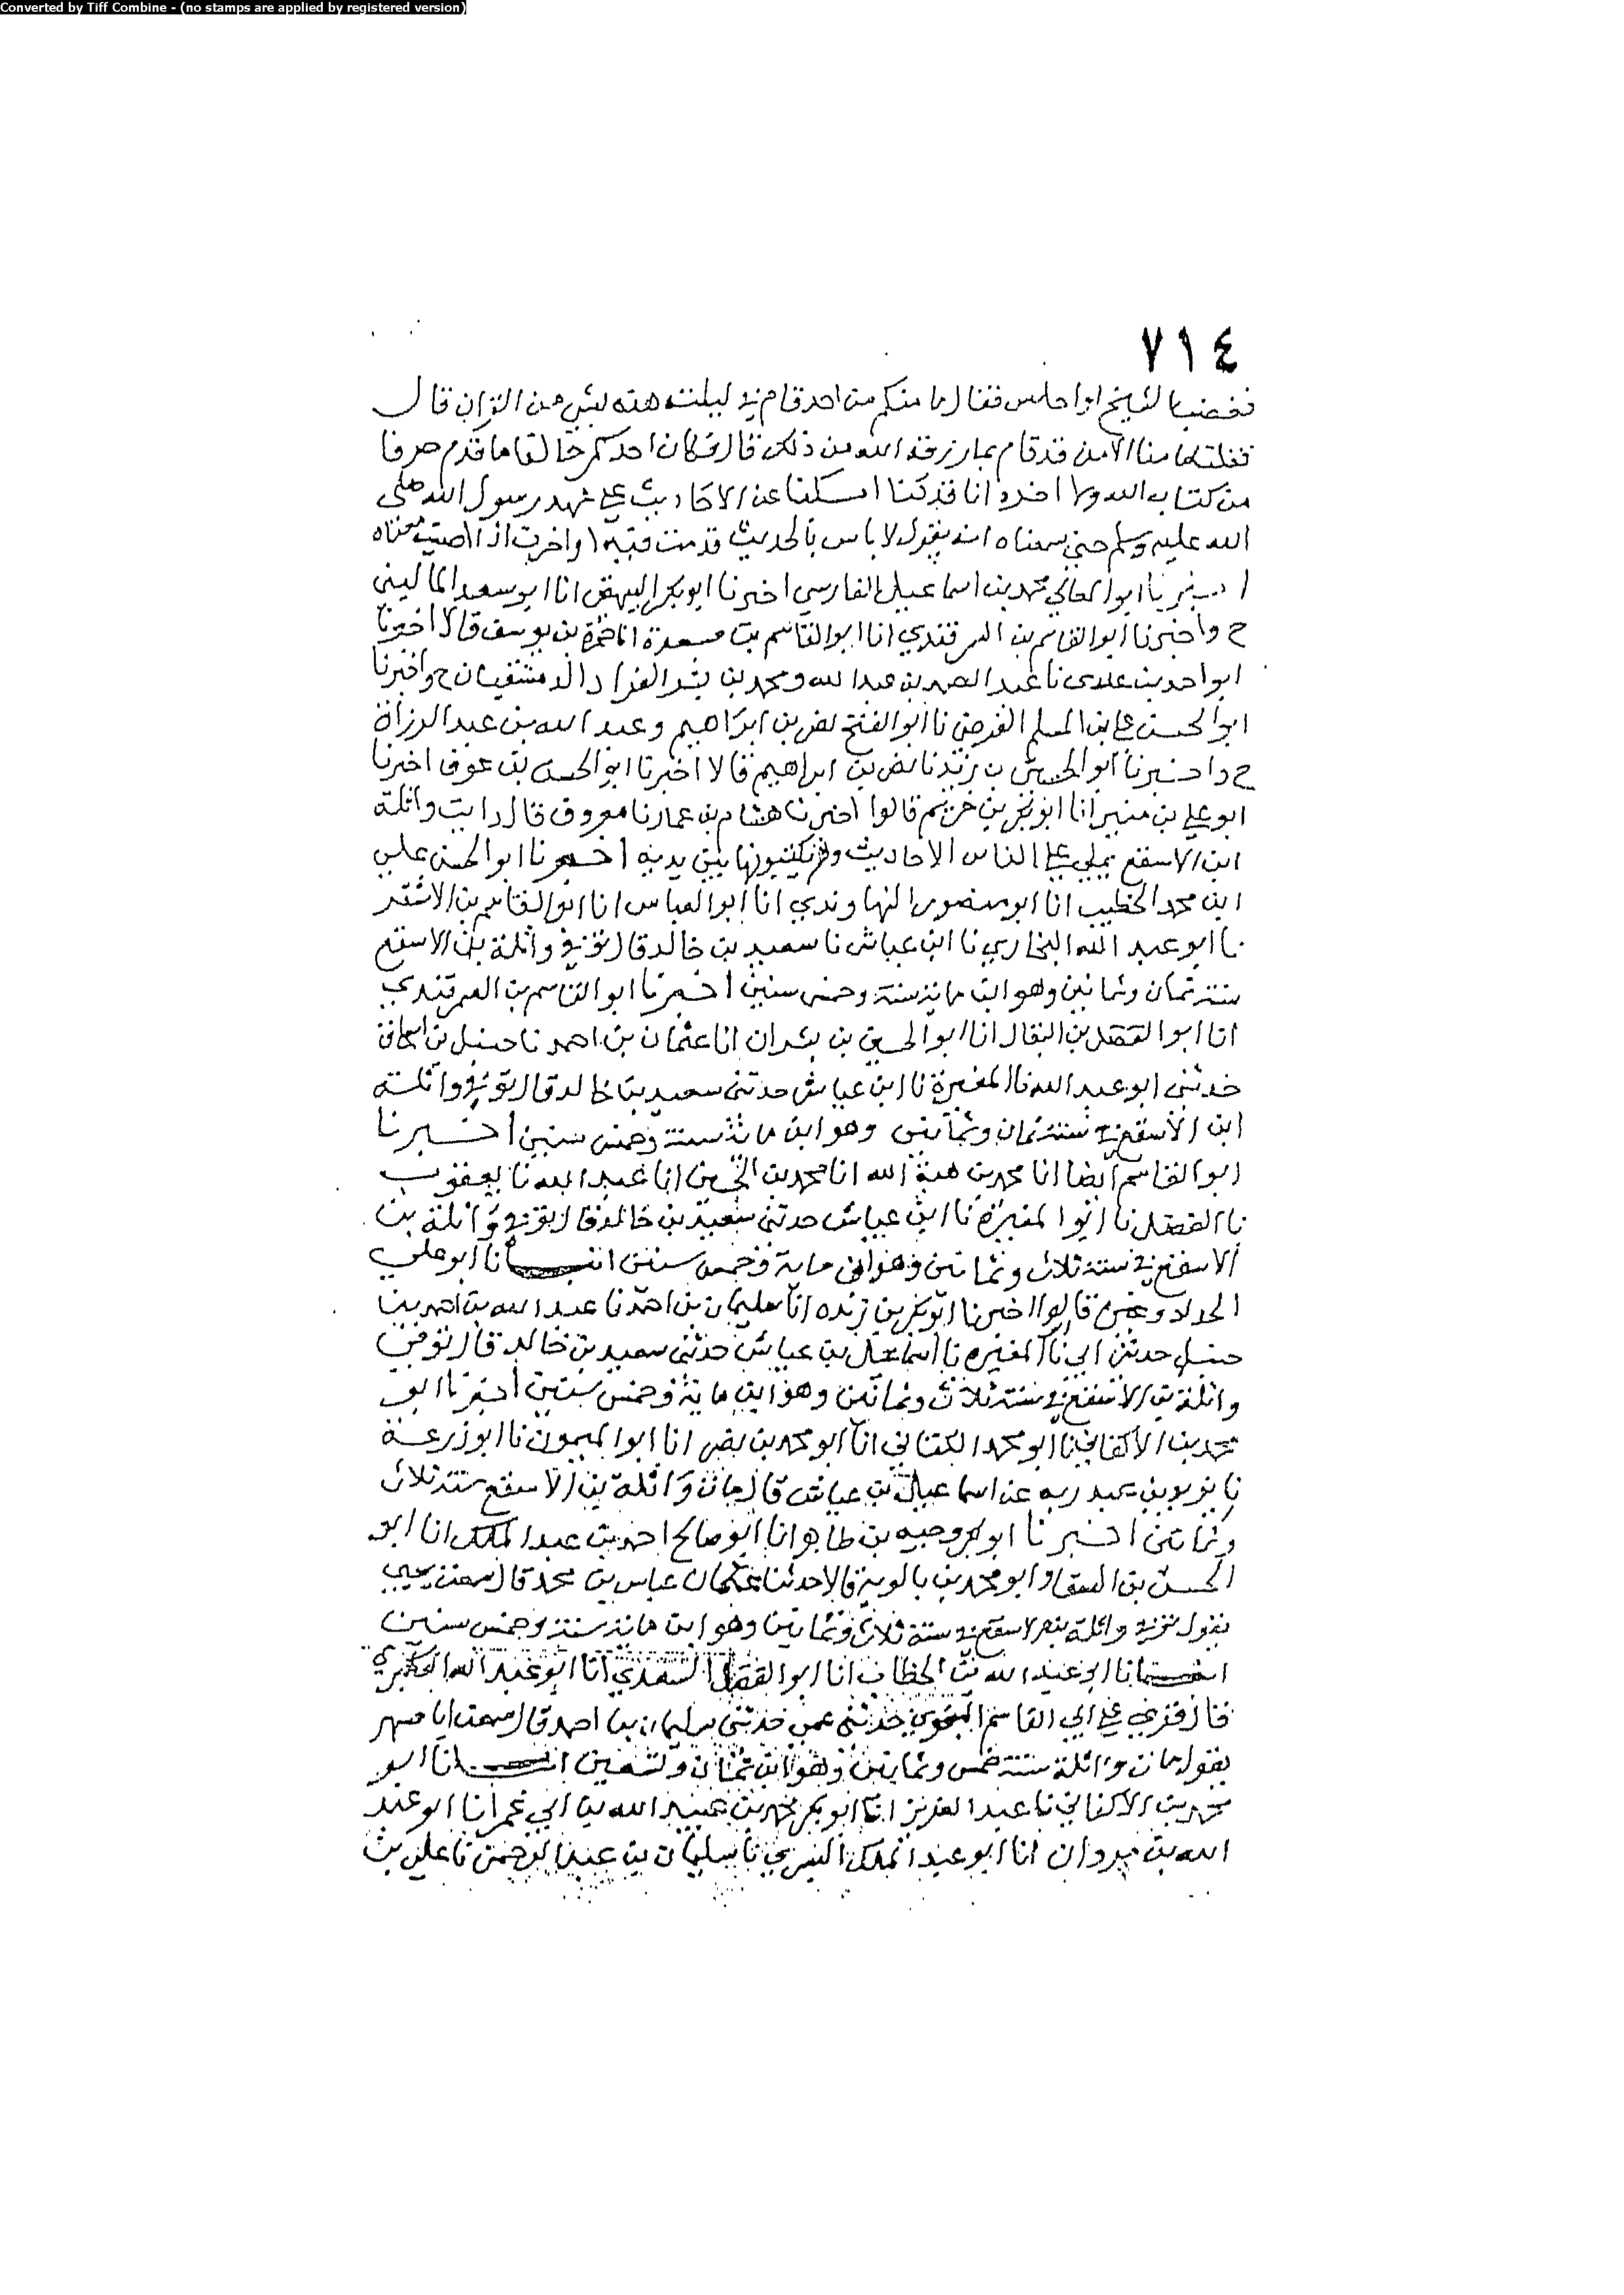 Converted by Tiff Combine - (no stamps are applied by registered version)
٧١٤
فغضب الشيخ ابوا حلس فقال ما منكم من احد قام في ليلته هذه بشي من القران قال
فقلنا ما منا الا من قد قام بما رزقه الله من ذلك قال فكان احدكم حالفا ما قدم حرفا
من كتاب الله ولا اخره انا قد كنا امسكنا عن الاحاديث على عهد رسول الله صلى
الله عليه وسلم حتى سمعناه انه يقول لا باس بالحديث قدمت فيه او اخرت اذا اصبت معناه
اخبرنا ابوا لمعالي محمد بن اسماعيل الفارسي اخبرنا ابو بكر البيهقي انا ابو سعد الماليني
ح واخبرنا ابو القاسم بن السمرقندي انا ابو القاسم بن مسعدة انا حمزة بن يوسف قالا اخبرنا
ابوا حمد بن عدى نا عبد الصمد بن عبد الله ومحمد بن بشر القزاز الدمشقيان ح واخبرنا
ابوا لحسن علي بن المسلم الفرضي نا ابوا لفتح نصر بن ابراهيم وعبد الله بن عبد الرزاق
ح واخبرنا ابو الحسن بن زيد نا نصر بن ابراهيم قالا اخبرنا ابو الحسن بن عوف اخبرنا
ابو علي بن منير انا ابو بكر بن خريم قالوا اخبرنا هشام بن عمار نا معروف قال رايت واثلة
ابن الاسقع يملي على الناس الاحاديث وهم يكتبونها بين يديه اخبرنا ابو الحسن علي
ابن محمد الخطيب انا ابو منصور النهاوندي انا ابوا لعباس انا ابو القاسم بن الاشقر
نا ابو عبد الله البخاري نا ابن عياش نا سعيد بن خالد قال توفي واثلة بن الاسقع
سنة ثمان وثمانين وهو ابن مائة سنة وخمس سنين اخبرنا ابو القاسم بن السمرقندي
انا ابوا لفضل بن البقال انا ابو الحسين بن بشران انا عثمان بن احمد نا حنبل بن اسحاق
حدثني ابو عبد الله نا المغيرة نا ابن عياش حدثني سعيد بن خالد قال توفي واثلة
ابن الاسقع في سنة ثمان وثمانين وهو ابن مائة سنة وخمس سنين اخبرنا
ابو القاسم ايضا انا محمد بن هبة الله انا محمد بن الحسين انا عبد الله نا يعقوب
نا الفضل نا ابوا لمغيرة نا ابن عياش حدثني سعيد بن خالد قال توفي واثلة بن
الاسقع في سنة ثلاث وثمانين وهو ابن ماية وخمس سنين انبانا ابو علي
الحداد وغيره قالوا اخبرنا ابو بكر بن ريذه انا سليمان بن احمد نا عبد الله بن احمد بن
حنبل حدثني ابي نا المغيره نا اسماعيل بن عياش حدثني سعيد بن خالد قال توفي
واثلة بن الاسقع في سنة ثلاث وثمانين وهو ابن ماية وخمس سنين اخبرنا ابو
محمد بن الاكفاني نا ابو محمد الكتاني انا ابو محمد بن نصر انا ابوا لميمون نا ابو زرعة
نا يزيد بن عبد ربه عن اسماعيل بن عياش قال مات واثلة بن الاسقع سنة ثلاث
وثمانين اخبرنا ابو بكر وجيه بن طاهر انا ابو صالح احمد بن عبد الملك انا ابو
الحسن بن السقا وابو محمد بن بالوية قالا حدثنا عباس بن محمد قال سمعت يحيى
يقول توفي واثلة بن الاسقع في سنة ثلاث وثمانين وهو ابن مائة سنة وخمس سنين
انبانا ابو عبد الله بن الحطاب انا ابوا لفضل السعدي انا ابو عبد الله العكبري
قال قرئ على ابي القاسم البغوي حدثني عمي حدثني سليمان بن احمد قال سمعت ابا مسهر
يقول مات واثلة سنة خمس وثمانين وهو ابن ثمان وتسعين انبانا ابو
محمد بن الاكفاني نا عبد العزيز انا ابو بكر محمد بن عبيد الله بن ابي عمر انا ابو عبد
الله بن مروان انا ابو عبد الملك البسري نا سليمان بن عبد الرحمن نا علي بن